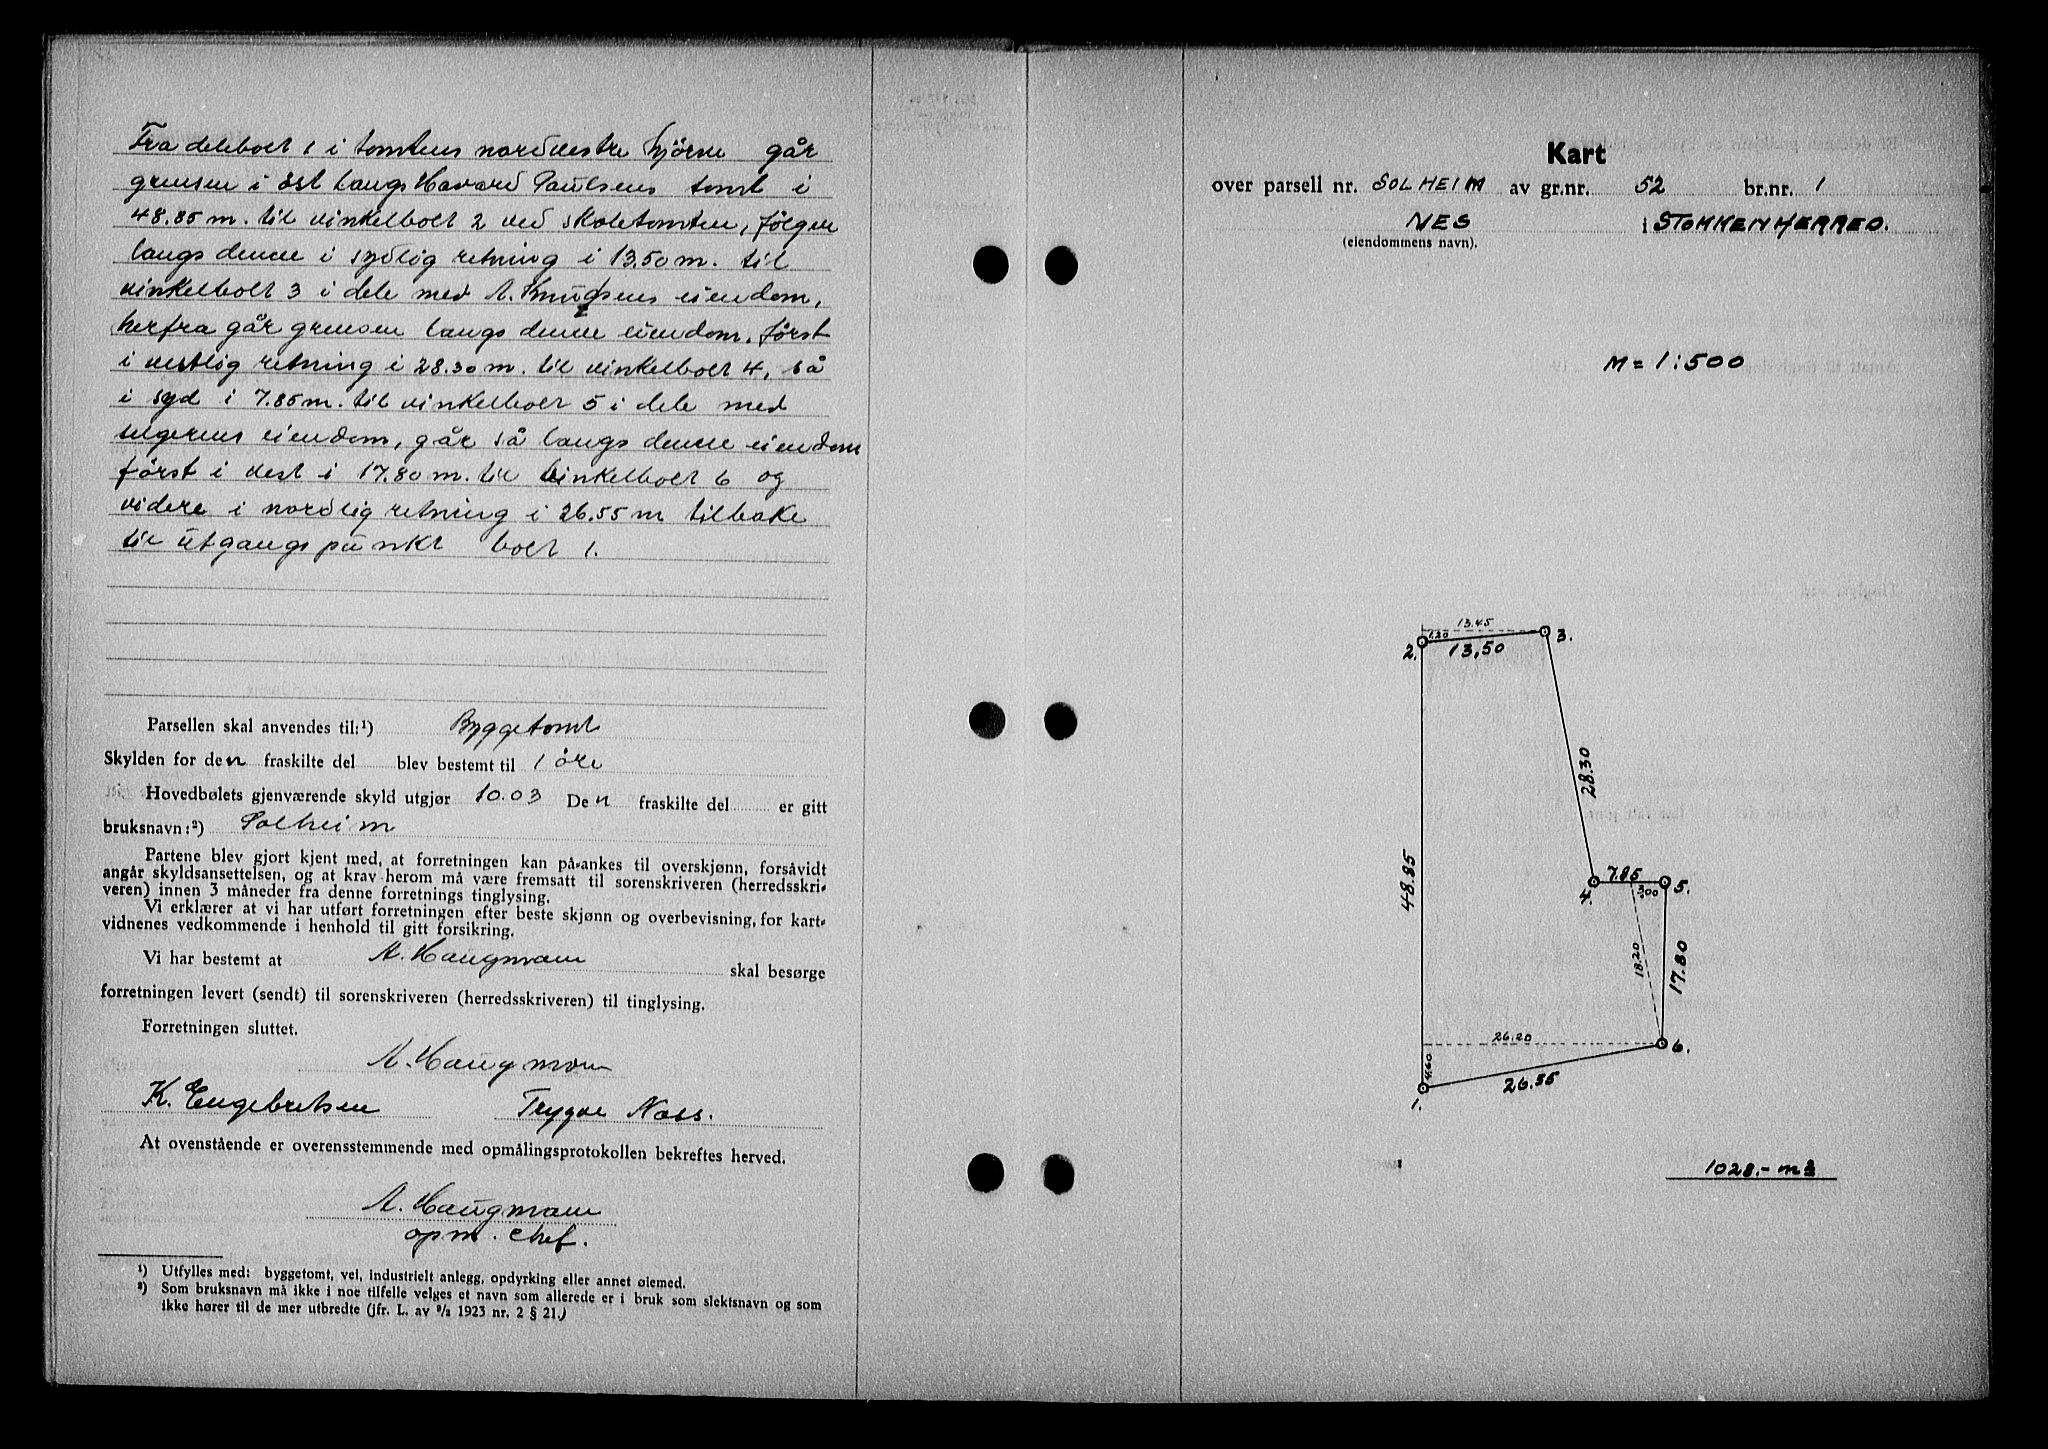 Fra delebolt 1 i tomtens nordvestre hjörne går
grensen i öst langs Havard Paulsens tomt i
48.85 m. til vinkelbolt 2 ved skoletomten, fölger
langs denne i sydlig retning i 13.50 m. til
vinkelbolt 3 i dele med A. Knudsens eiendom,
herfra går grensen langs denne eiendom, först
i vestlig retning i 28.30 m. til vinkelbolt 4, så
i syd i 7.85 m. til vinkelbolt 5 i dele med
selgerens eiendom, går så langs denne eiendom
först i vest i 17.80 m. til vinkelbolt 6 og
videre i nordlig retning i 26.55 m tilbake
til utgangspunkt bolt 1.
Parsellen skal anvendes til:¹) Byggetomt
Skylden for den fraskilte del blev bestemt til 1 öre
Hovedbølets gjenværende skyld utgjør 10.03 Den fraskilte del er gitt
bruksnavn:²) Solheim
Partene blev gjort kjent med, at forretningen kan på-ankes til overskjønn, forsåvidt
angår skyldsansettelsen, og at krav herom må være fremsatt til sorenskriveren (herredsskri-
veren) innen 3 måneder fra denne forretnings tinglysing.
Vi erklærer at vi har utført forretningen efter beste skjønn og overbevisning, for kart-
vidnenes vedkommende i henhold til gitt forsikring.
Vi har bestemt at A. Haugmoen skal besørge
forretningen levert (sendt) til sorenskriveren (herredsskriveren) til tinglysing.
Forretningen sluttet.
A. Haugmoen
K. Engebretsen Trygve Næss.
At ovenstående er overensstemmende med opmålingsprotokollen bekreftes herved.
A. Haugmoen
opm. chef.
¹) Utfylles med: byggetomt, vei, industrielt anlegg, opdyrking eller annet øiemed.
²) Som bruksnavn må ikke i noe tilfelle velges et navn som allerede er i bruk som slektsnavn og som
ikke hører til de mer utbredte (jfr. L. av ⁹/₂ 1923 nr. 2 § 21.)
Kart
over parsell nr. SOLHEIM av gr.nr. 52 br.nr. 1
NES i STOKKEN HERRED.
(eiendommens navn).
M = 1:500
13.45
2. 1.20 3.
13,50
28.30
48.85
7.85
4. 3.00 5.
18.20
17.80
26.20
6.
4.60
26.55
1.
1028.- m²